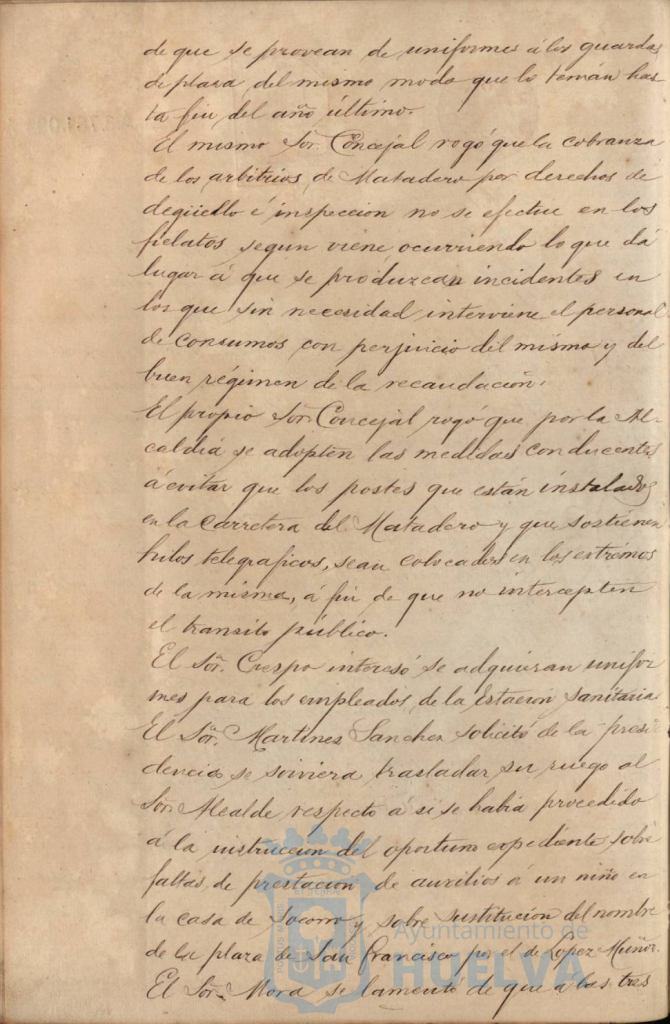 de que se provean de uniformes á los guardas
de plaza, del mismo modo que lo tenían has-
ta fin del año último.
El mismo Sõr. Concejal rogó que la cobranza
de los arbitrios, de Matadero por derechos de
degüello é inspeccion no se efectue en los
fielatos, segun viene ocurriendo lo que dá
lugar á que se produzcan incidentes en
los que sin necesidad interviene el personal
de consumos con perjuicio del mismo y del
buen régimen de la recaudación.
El propio Sõr. Concejal rogó que por la Al-
caldía se adopten las medidas conducentes
á evitar que los postes que están instalados
en la Carretera del Matadero y que sostienen
hilos telegraficos, sean colocados en los extremos
de la misma, á fin de que no intercepten
el transito público.
El Sõr. Crespo interesó se adquieran unifor
mes para los empleados, de la Estación sanitaria
El Sõr. Martinez Sanchez solicitó de la presi
dencia se sirviera trasladar su ruego al
Sõr. Alcalde respecto á si se habia procedido
á la instruccion del oportuno expediente sobre
faltas, de prestacion de auxilios á un niño en
la casa de Socorro y sobre sustitución del nombre
de la plaza de San Francisco por el de Lopez Muñoz.
El Sõr. Mora se lamentó de que a las tres
Ayuntamiento de
HUELVA